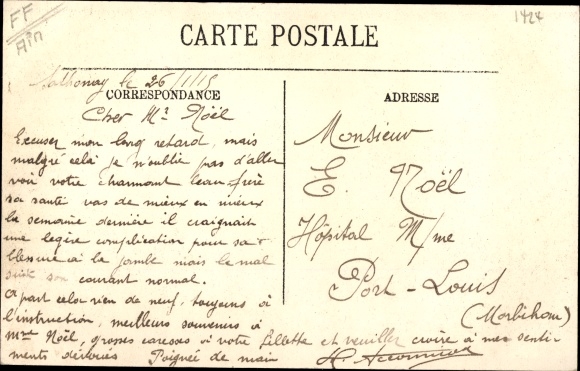 FF
Ain
1424
CARTE POSTALE
Sathonay le 26/1/15
CORRESPONDANCE
Cher Mr Noël
Excuser mon long retard, mais
malgré cela je n'oublie pas d'aller
voir votre charmant beau-frère
sa santé vas de mieux en mieux
la semaine dernière il craignait
une legère complication pour sa
blessure à la jambe mais le mal
suit son courant normal.
A part cela rien de neuf, toujours à
l'instruction, meilleurs souvenirs à
Mme Noël, grosses caresses à votre Lillette et veuiller croire à mes senti-
ments dévoués Poignée de main
ADRESSE
Monsieur
E. Noël
Hôpital M/me
Port-Louis
(Morbihan)